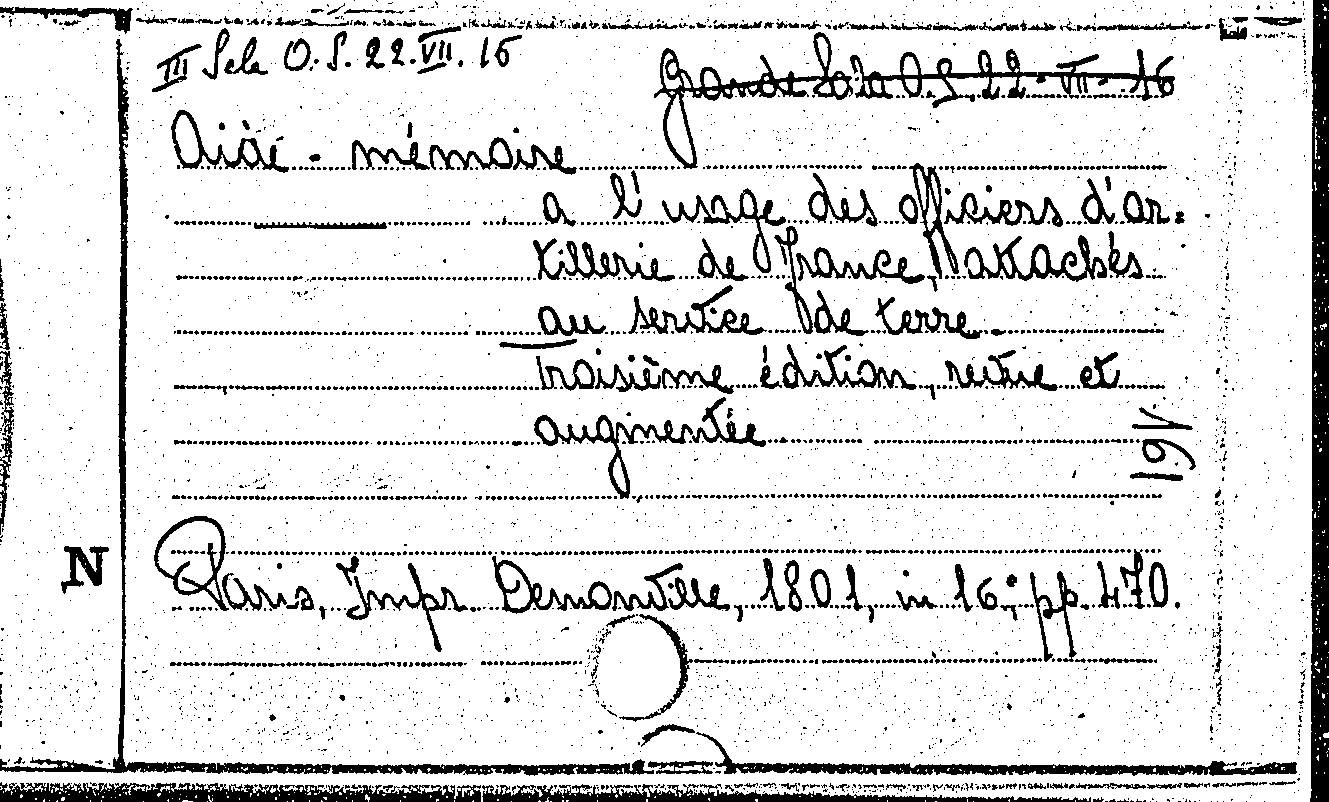 III Sala O. S. 22. VII. 16
Grande Sala O. S. 22 - VII - 16
Aide - mémoire
a l'usage des officiers d'ar-
tillerie de France, attachés
au service de terre.
Troisième édition, revue et
augmentée.
191
N
Paris, Impr. Demonville, 1801, in 16°, pp. 470.